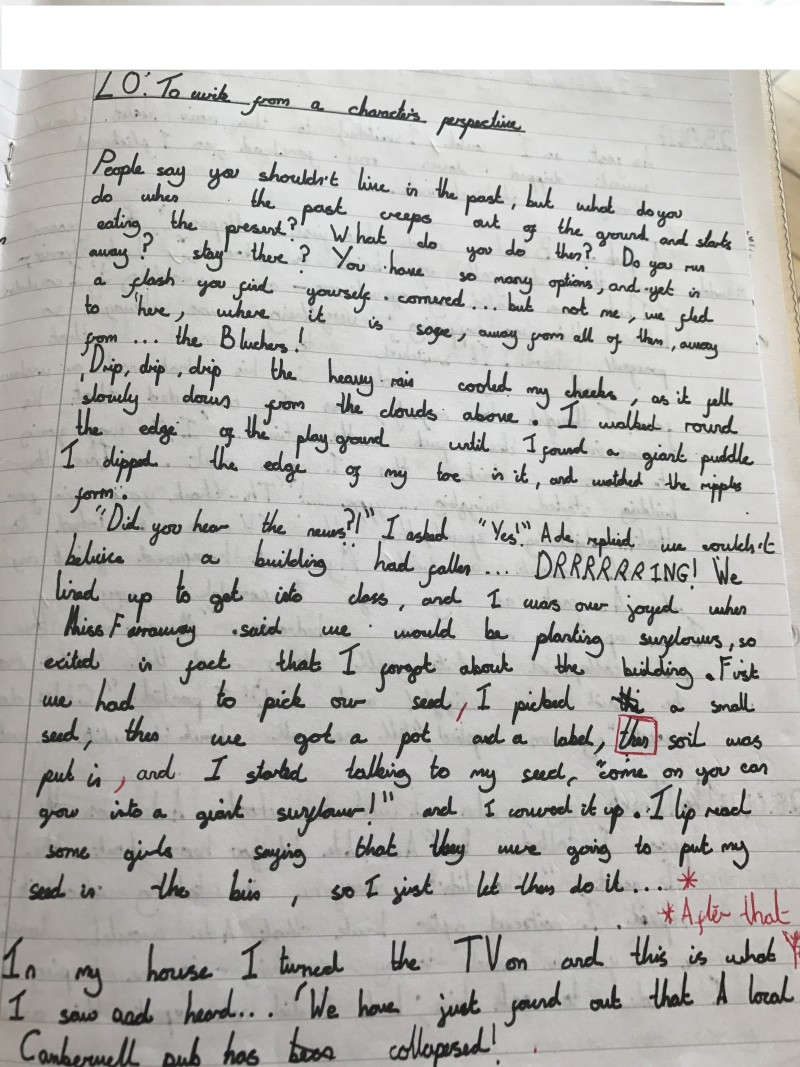 LO: To write from a characters perspective
People say you shouldn't live in the past, but what do you
do when the past creeps out of the ground and starts
eating the present? What do you do then? Do you run
away? stay there? You have so many options, and yet in
a flash you find yourself cornered... but not me, we fled
to here, where it is safe, away from all of them, away
from ... the Bluchers!
Drip, drip, drip the heavy rain cooled my cheeks, as it fell
slowly down from the clouds above. I walked round
the edge of the playground until I found a giant puddle
I dipped the edge of my toe in it, and watched the ripples
form.
"Did you hear the news?!" I asked "Yes!" Ade replied we couldn't
beleive a building had fallen ... DRRRRRRING! We
lined up to get into class, and I was over joyed when
Miss Farraway said we would be planting sunflowers, so
exited in fact that I forgot about the building. First
we had to pick our seed, I picked a small
seed, then we got a pot and a label, then soil was
put in, and I started talking to my seed, "come on you can
grow into a giant sunflower!" and I covered it up. I lip read
some girls saying that they were going to put my
seed in the bin, so I just let them do it... *
*After that
In my house I turned the TV on and this is what
I saw and heard... "We have just found out that A local
Camberwell pub has collapesed!